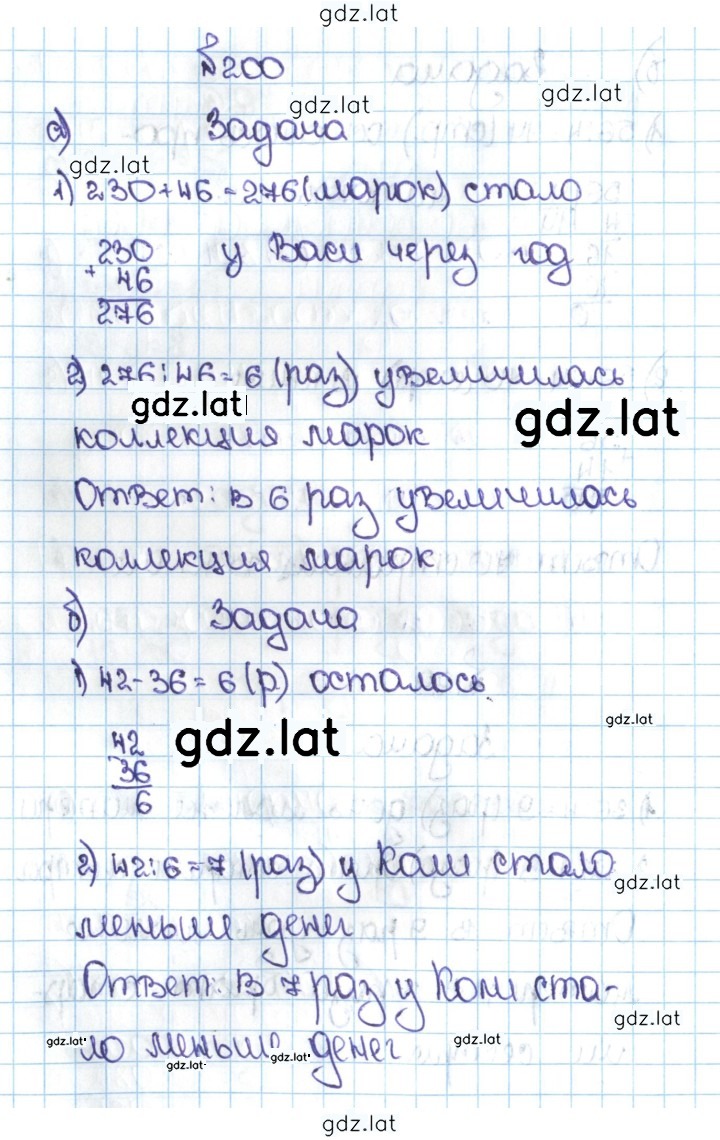 gdz.lat
№200
gdz.lat
gdz.lat
а) Задача
gdz.lat
1) 230+46=276(марок) стало
230 у Васи через год
+ 46
276
2) 276:46=6 (раз) увеличилась
gdz.lat
gdz.lat
коллекция марок
Ответ: в 6 раз увеличилась
коллекция марок
б) Задача
1) 42-36=6(р) осталось
gdz.lat
gdz.lat
42
- 36
6
2) 42:6=7 (раз) у Коли стало
gdz.lat
меньше денег
Ответ: в 7 раз у Коли ста-
gdz.lat
gdz.lat
gdz.lat
ло меньше денег
gdz.lat
gdz.lat
gdz.lat